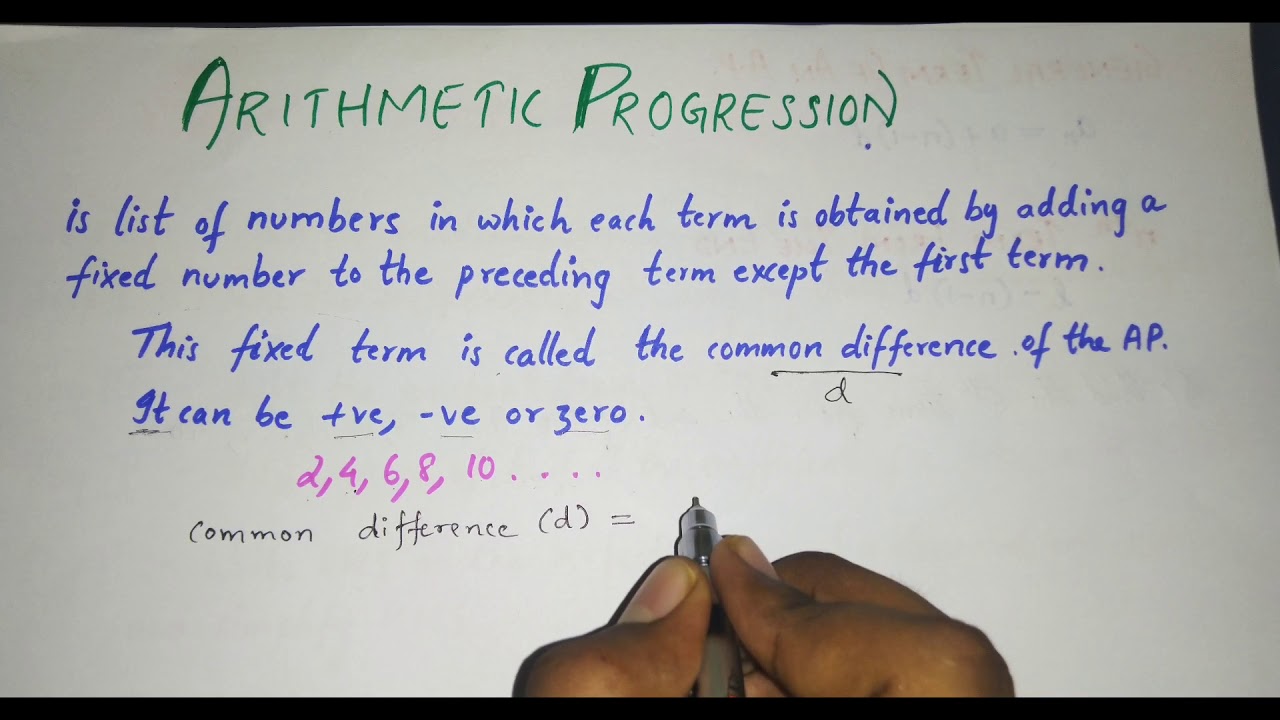 ARITHMETIC PROGRESSION
is list of numbers in which each term is obtained by adding a
fixed number to the preceding term except the first term.
This fixed term is called the common difference of the AP.
d
It can be +ve, -ve or zero.
2, 4, 6, 8, 10 . . . .
common difference (d) =